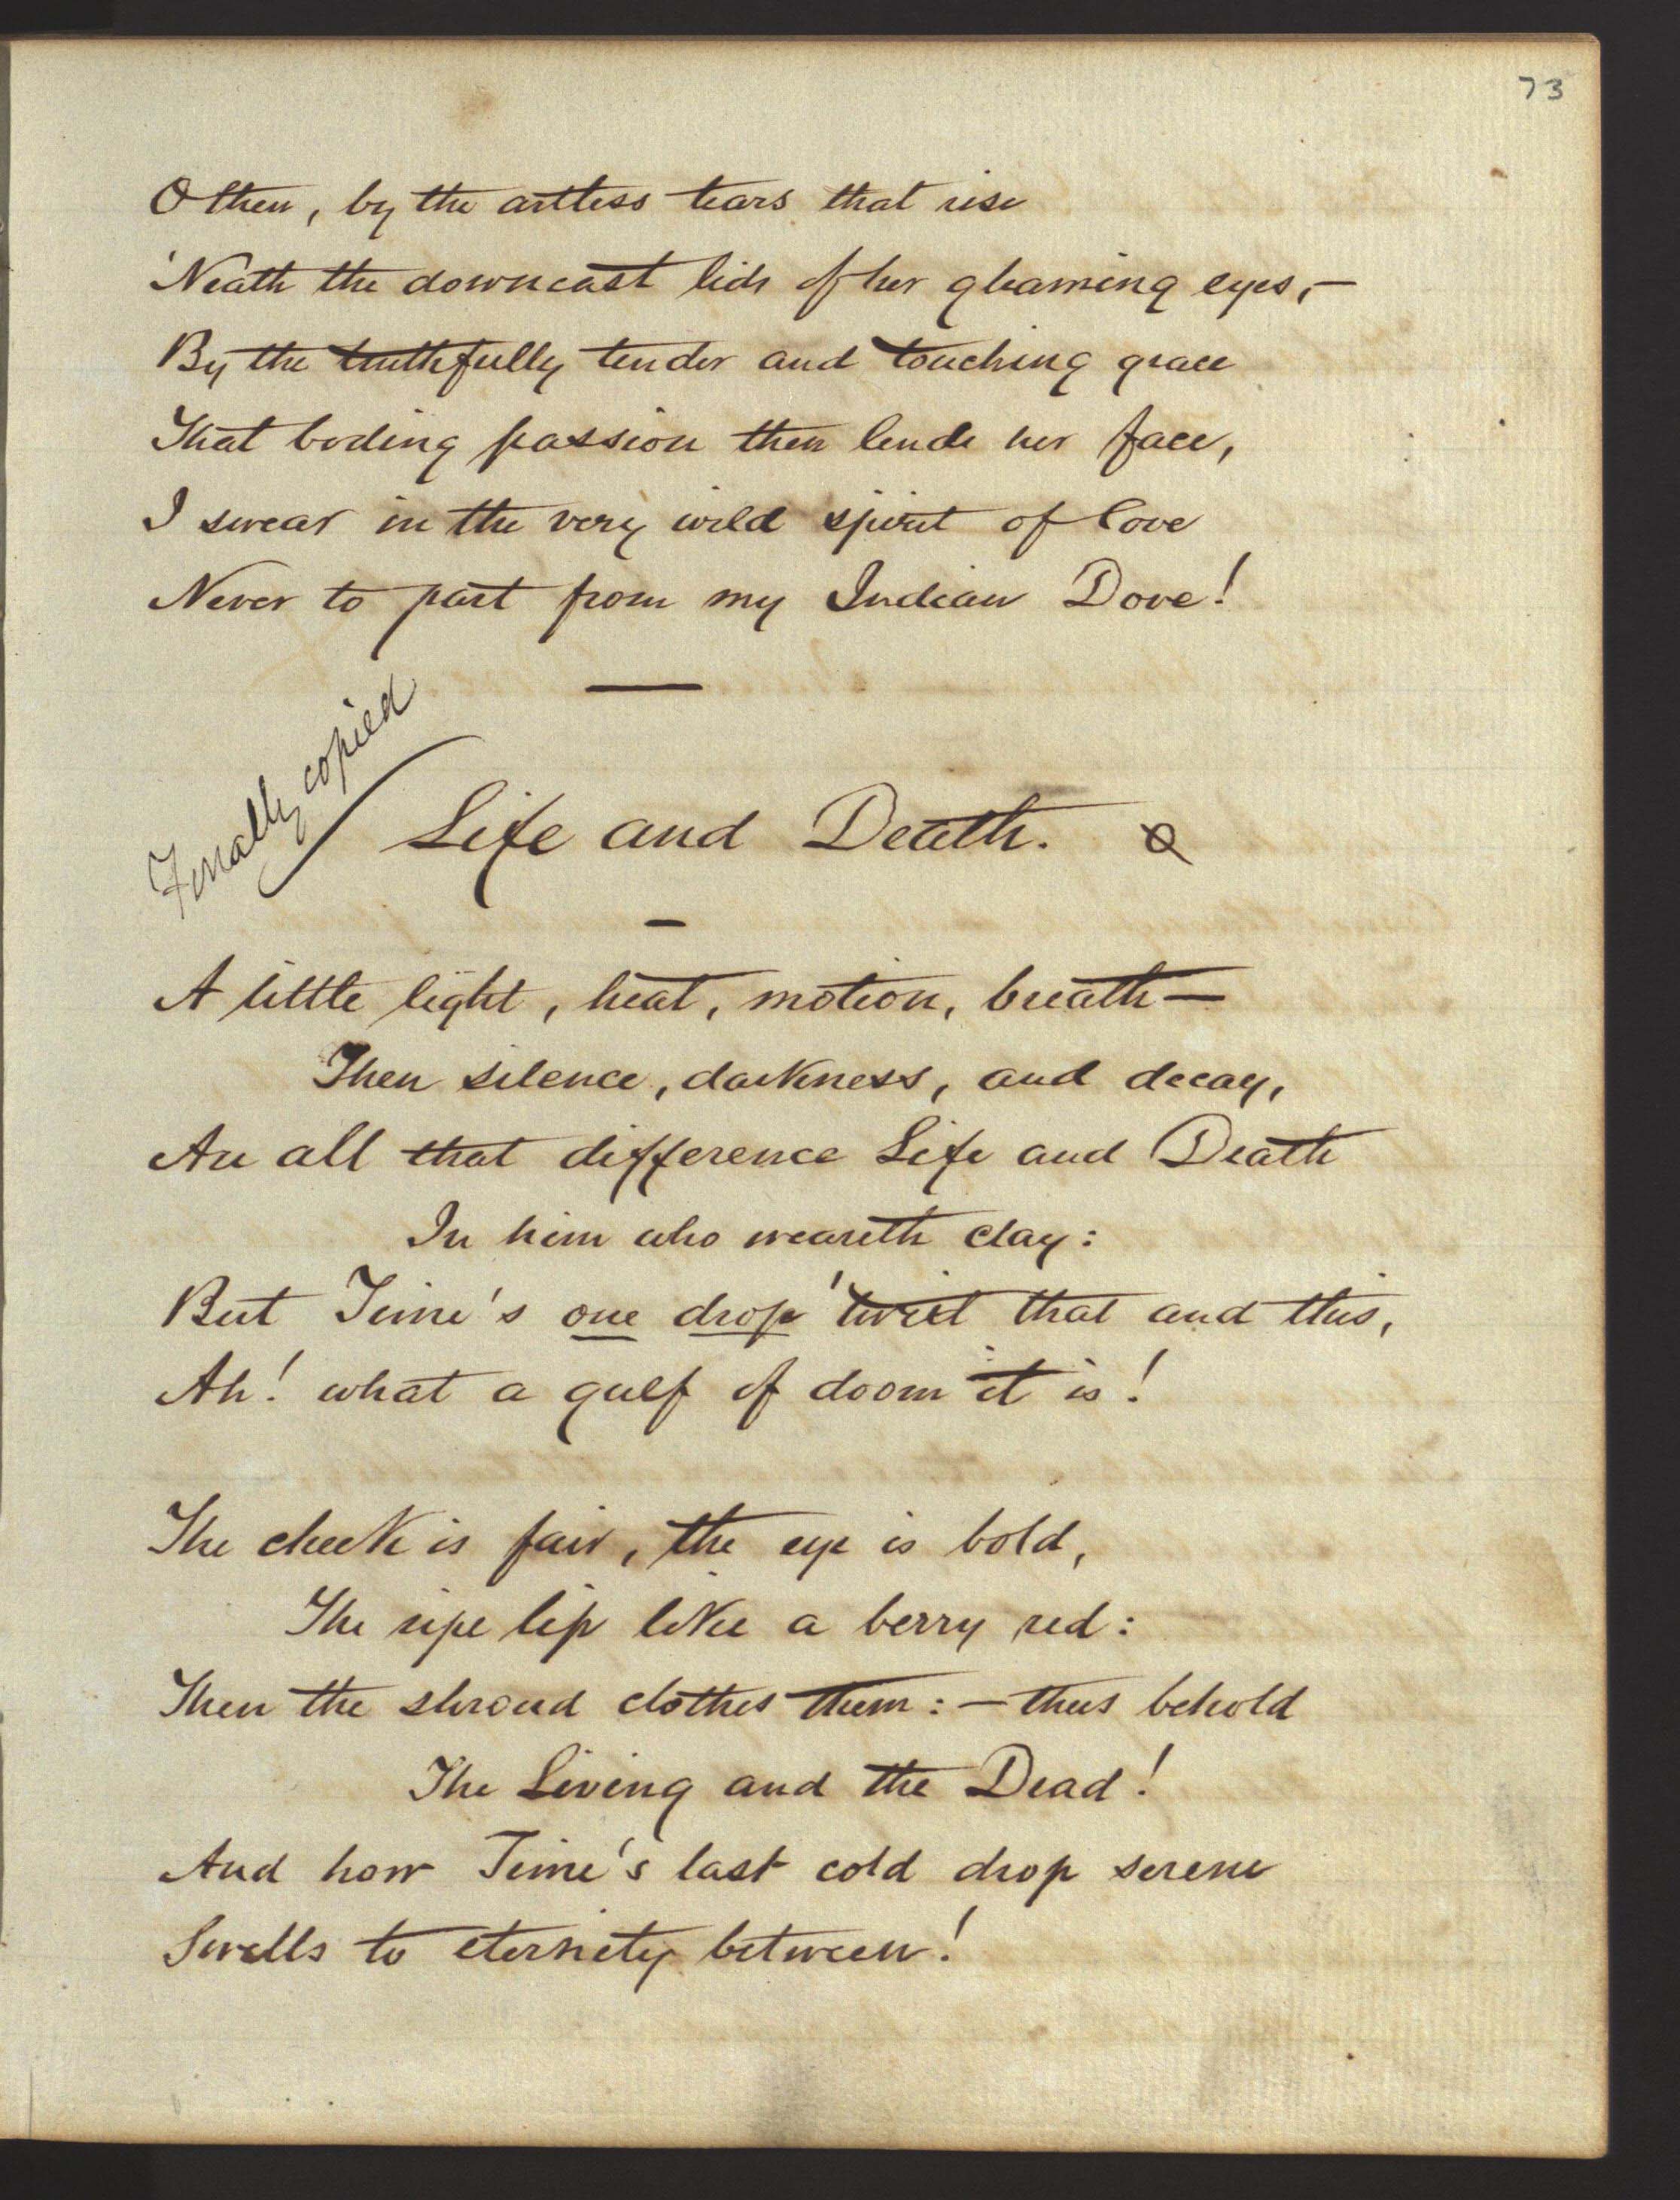 73
O then, by the artless tears that rise
'Neath the downcast lids of her gleaming eyes,—
By the truthfully tender and touching grace
That boding passion then lends her face,
I swear in the very wild spirit of love
Never to part from my Indian Dove!
Finally copied
Life and Death.
A little light, heat, motion, breath—
Then silence, darkness, and decay,
Are all that difference Life and Death
In him who weareth clay:
But Time's one drop 'twixt that and this,
Ah! what a gulf of doom it is!
The cheek is fair, the eye is bold,
The ripe lip like a berry red:
Then the shroud clothes them:— thus behold
The Living and the Dead!
And how Time's last cold drop serene
Swells to eternity between!